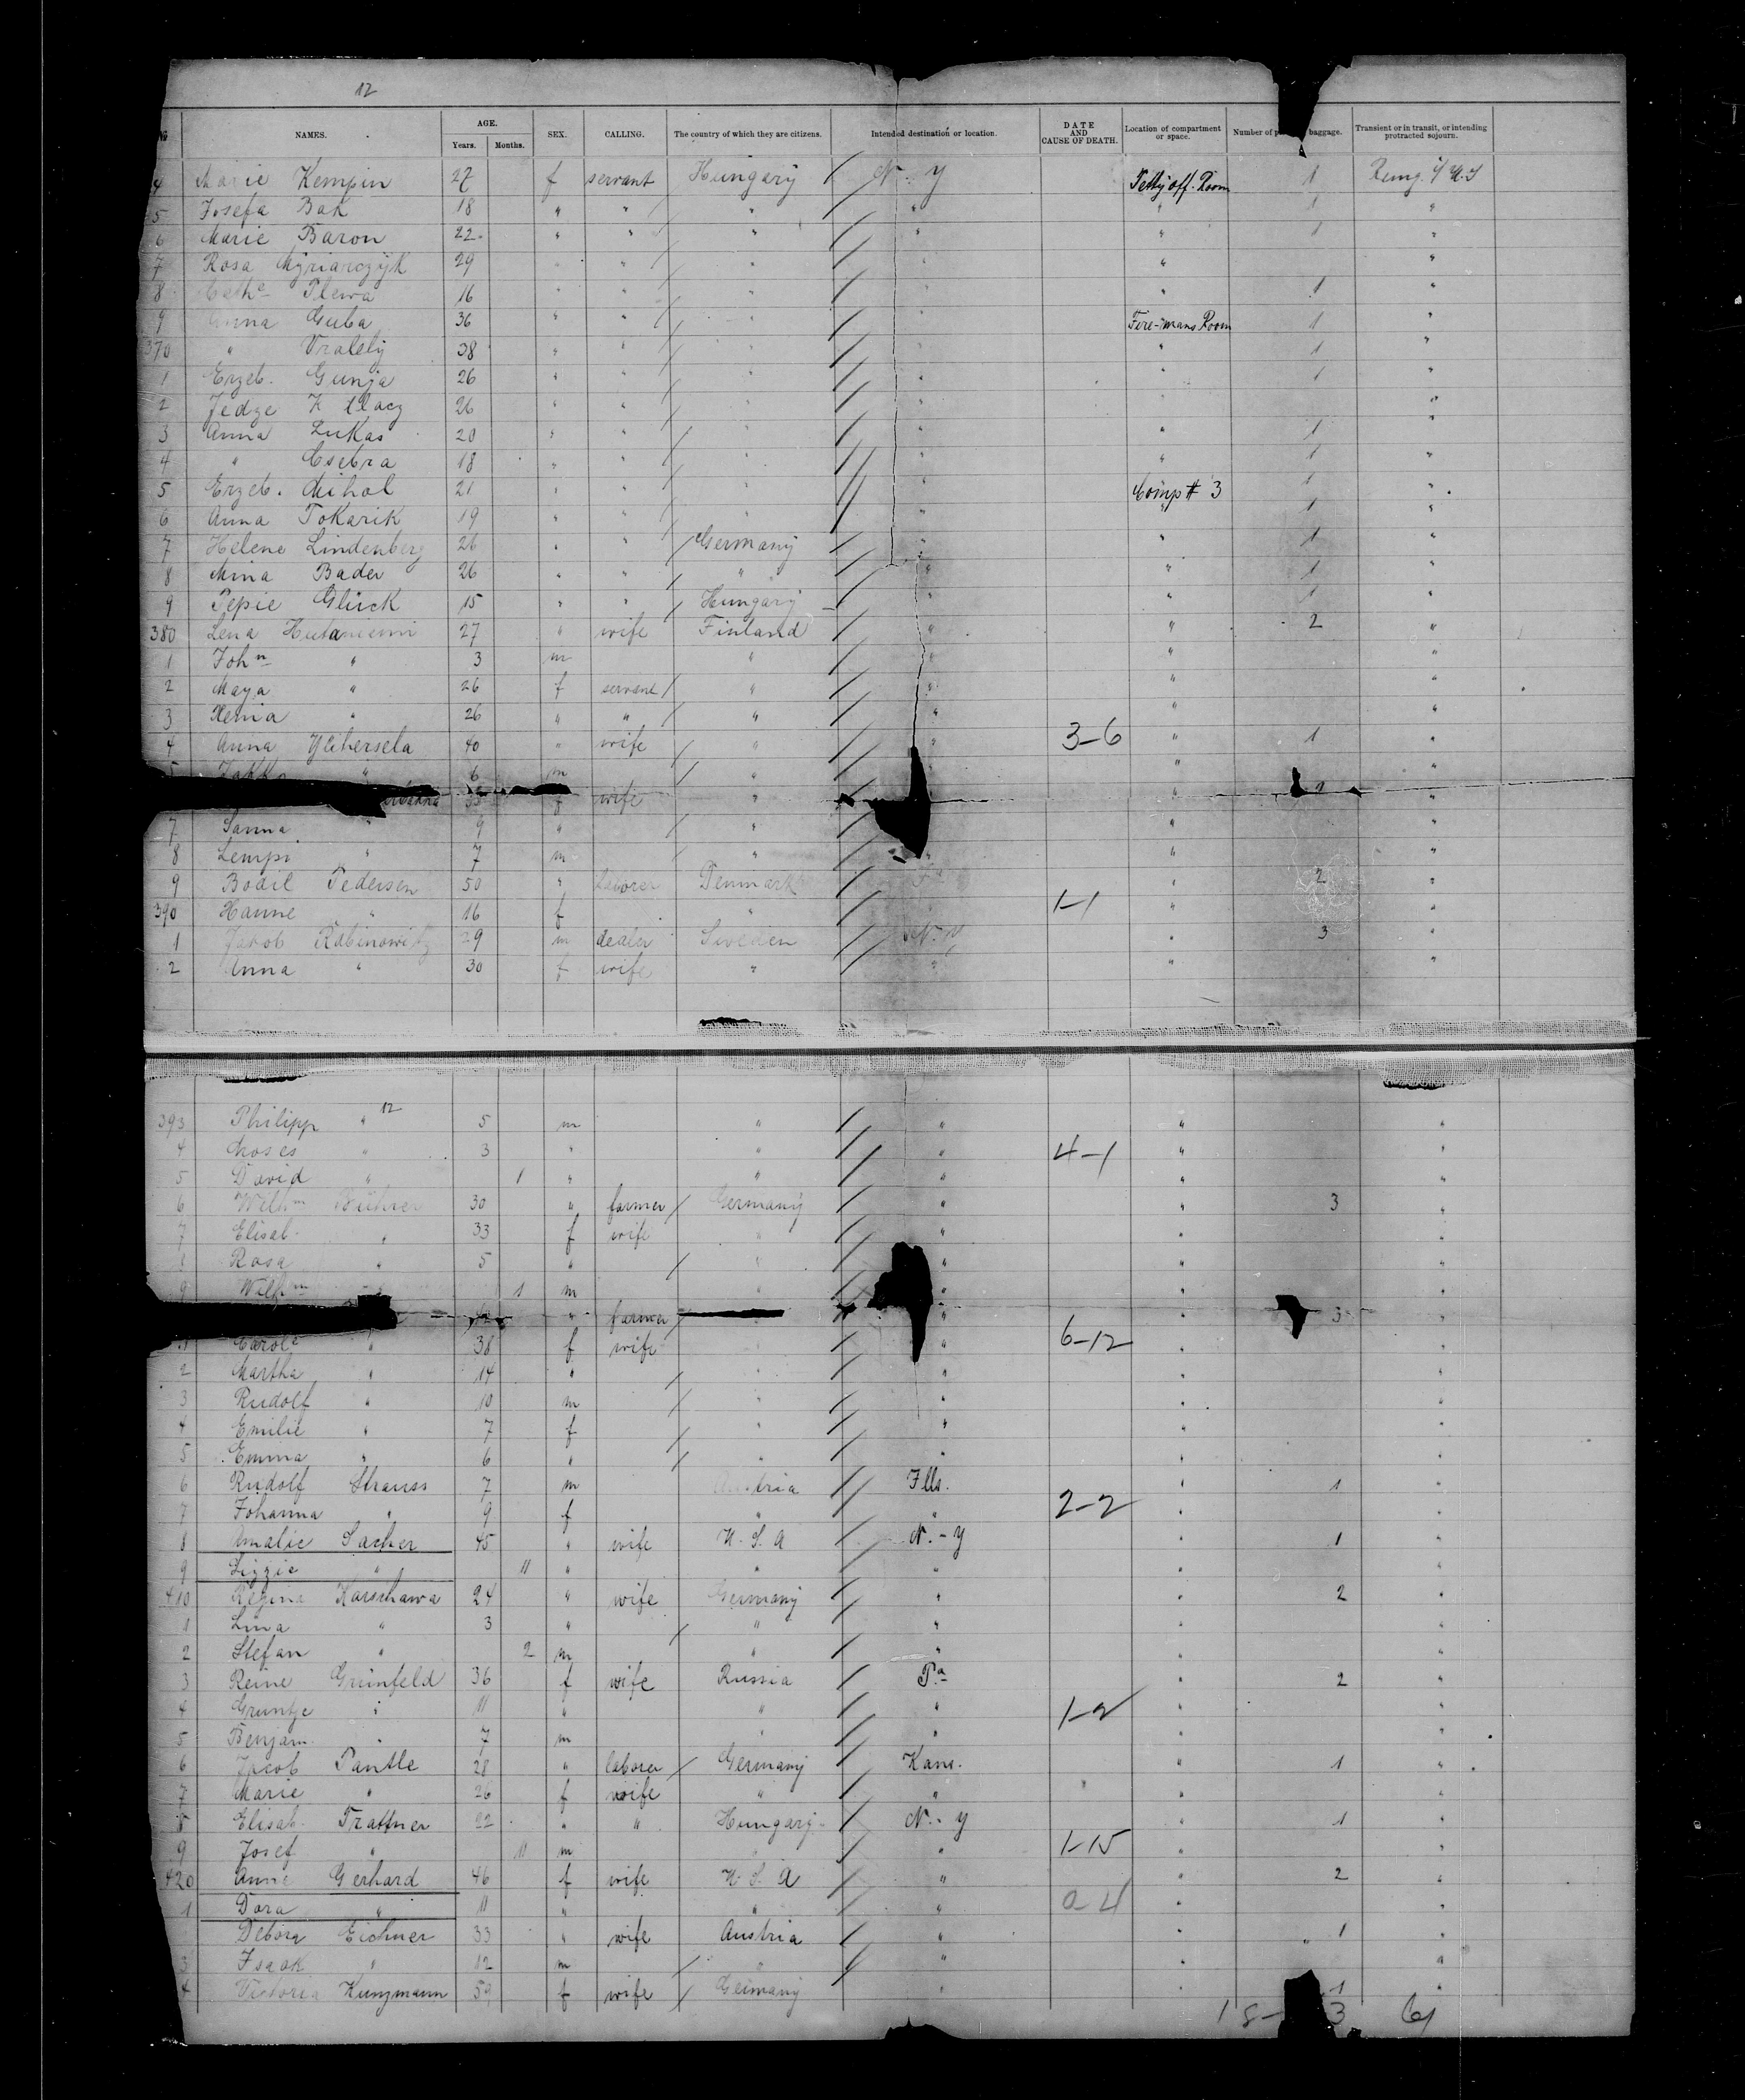 12
NAMES. AGE. Years. Months. SEX. CALLING. The country of which they are citizens. Intended destination or location. DATE AND CAUSE OF DEATH. Location of compartment or space. Number of baggage. Transient or in transit, or intending protracted sojourn.
4 Marie Kempin 27 f servant Hungary / N. Y Petty off. Room 1
5 Josefa Bak 18 " " / " / " " 1 "
6 Marie Baron 22 " " / " / " " 1 "
7 Rosa 29 " " / " / " " "
8 Cathe Plewa 16 " " / " / " " 1 "
9 Anna Guba 36 " " / " / " Fire-mans Room 1 "
370 " 38 " " / " / " " 1 "
1 Erzeb. Gunja 26 " " / " / " " 1 "
2 26 " " / " / " " "
3 Anna Lukas 20 " " / " / " " 1 "
4 " Csebra 18 " " / " // " " 1 "
5 Erzeb. Mihal 21 " " / " // " Comp # 3 1 "
6 Anna Tokarik 19 " " / " / " " 1 "
7 Helene Lindenberg 26 " " / Germany / " " 1 "
8 Mina Bader 26 " " / " / " " 1 "
9 Pepie Glück 15 " " / Hungary / " " 1 "
380 Lena 27 " wife Finland / " " 2 "
1 John " 3 m " / " " "
2 Maya " 26 f servant / " / " " "
3 " 26 " " / " / " " "
4 Anna 40 " wife / " / " 3-6 " 1 "
5 " 6 m / " " "
f wife " " 1 "
7 Sanna " 9 " / " / " "
8 Lempi " 7 m / " / " " "
9 Bodil Pedersen 50 " laborer Denmark / " 2 "
390 Hanne " 16 f " / " 1-1 " "
1 Jacob Rabinowitz 29 m dealer Sweden / N. Y " 3 "
2 Anna " 30 f wife " / " " "
12
393 Philipp " 5 m " / " " "
4 Moses " 3 " " / " 4-1 " "
5 David " 1 " " / " " "
6 Wilhm 30 " farmer / Germany / " " 3 "
7 Elisab. " 33 f wife " / " " "
Rosa " 5 " / " / " " "
9 Wilhm " 1 m " / " " "
" farmer / " 3 "
1 Carole " 38 f wife " / " 6-12 " "
2 Martha " 14 " / " / " " "
3 Rudolf " 10 m / " / " " "
4 Emilie " 7 f / " / " " "
5 Emma " 6 " / " / " " "
6 Rudolf Strauss 7 m Austria // Ills. " 1 "
7 Johanna " 9 f " / " 2-2 " "
8 Amalie Sacher 45 " wife U. S. A / N. - Y " 1 "
9 Lizzie " 11 " " / " " "
410 Regina Karschawa 24 " wife Germany / " " 2 "
1 Lina " 3 " / " / " " "
2 Stefan " 2 m " / " " "
3 Reine Grünfeld 36 f wife Russia / Pa " 2 "
4 Gruntje " 11 " " / " 1-2 " "
5 Benjam. " 7 m " / " " "
6 Jacob Pantle 28 " laborer / Germany / Kans. " 1 "
7 Marie " 26 f wife " / " " "
8 Elisab. Trattner 22 " " Hungary / N. - Y " 1 "
9 Josef " 11 m " / " 1-15 " "
420 Anna Gerhard 46 f wife U. S. A / " " 2 "
1 Dora " 11 " " / " 0-4 " "
Debora Eichner 33 " wife Austria / " " 1 "
3 Isaak " 12 m / " / " " "
4 Victoria Kunzmann 59 f wife / Germany " " 1 "